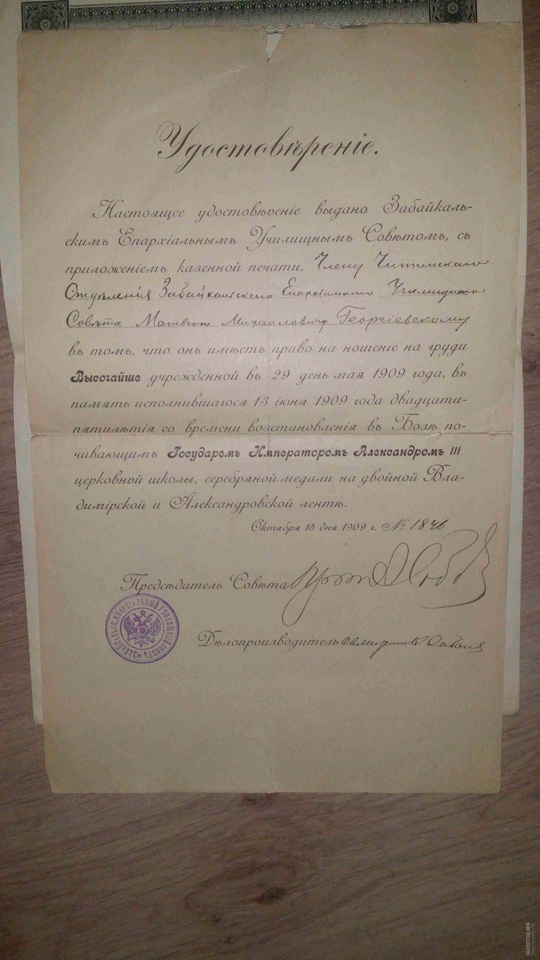 Удостовѣреніе.
Настоящее удостовѣреніе выдано Забайкаль-
скимъ Епархіальнымъ Училищнымъ Совѣтомъ, съ
приложеніемъ казенной печати, Члену Читинскаго
Отдѣленія Забайкальскаго Епархіальнаго Училищнаго
Совѣта Матвѣю Михаиловичу Георгіевскому
въ томъ, что онъ имѣетъ право на ношеніе на груди
Высочайше учрежденной въ 29 день мая 1909 года, въ
память исполнившагося 13 іюня 1909 года двадцати-
пятилѣтія со времени возстановленія въ Бозѣ по-
чивающимъ Государемъ Императоромъ Александромъ III
церковной школы, серебряной медали на двойной Вла-
димірской и Александровской лентѣ.
Октября 15 дня 1909 г. № 1846
Предсѣдатель Совѣта
Дѣлопроизводитель